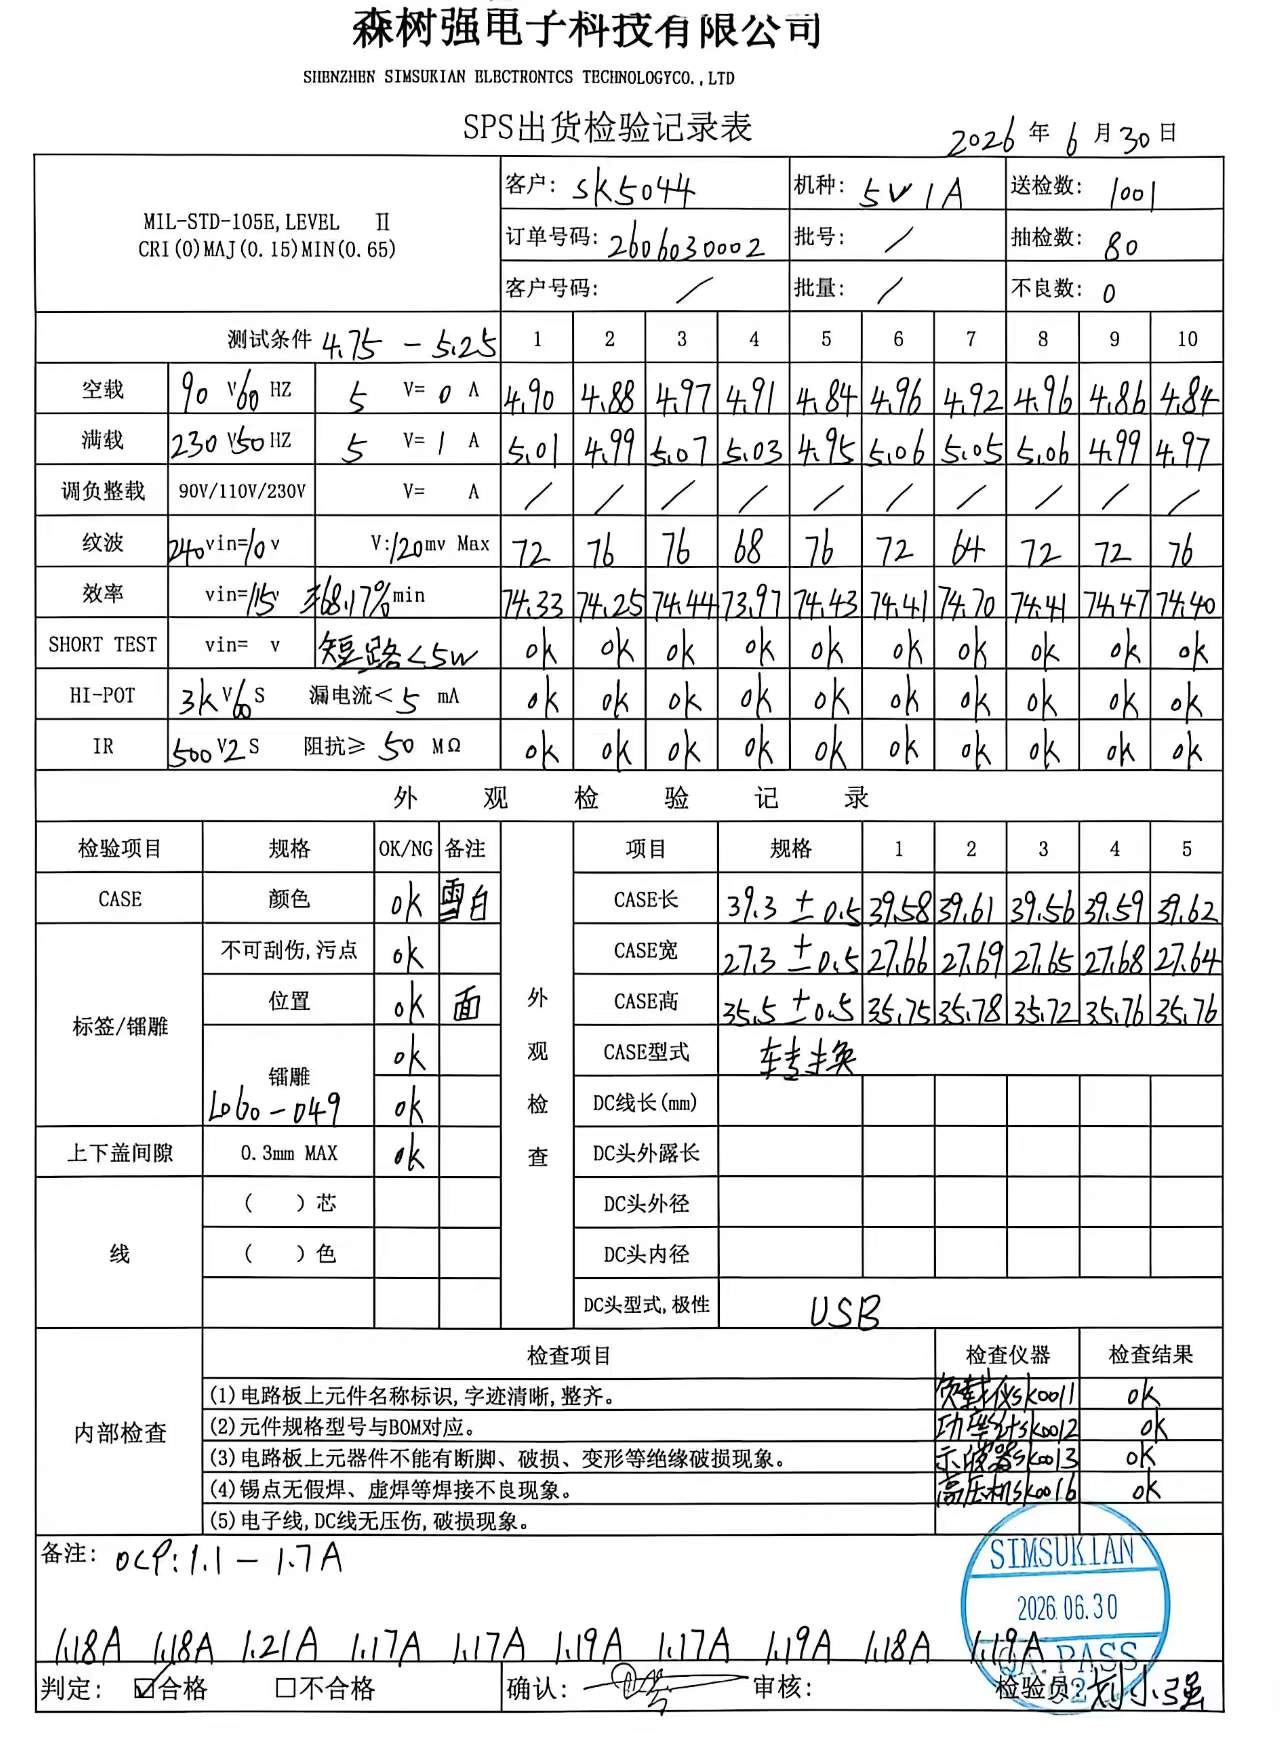 森树强电子科技有限公司
SHENZHEN SIMSUKIAN ELECTRONTCS TECHNOLOGYCO.,LTD
SPS出货检验记录表
2026年6月30日
MIL-STD-105E,LEVEL Ⅱ
CRI(0)MAJ(0.15)MIN(0.65)
客户: SK5044 机种: 5V1A 送检数: 1001
订单号码: 2606030002 批号: / 抽检数: 80
客户号码: / 批量: / 不良数: 0
测试条件 4.75-5.25 1 2 3 4 5 6 7 8 9 10
空载 90V60HZ 5V=0A 4.90 4.88 4.97 4.91 4.84 4.96 4.92 4.96 4.86 4.84
满载 230V50HZ 5V=1A 5.01 4.99 5.07 5.03 4.95 5.06 5.05 5.06 4.99 4.97
调负整载 90V/110V/230V V= A / / / / / / / / / /
纹波 240vin=10v V:120mv Max 72 76 76 68 76 72 64 72 72 76
效率 vin=115v 68.17%min 74.33 74.25 74.44 73.97 74.43 74.41 74.70 74.41 74.47 74.40
SHORT TEST vin= v 短路<5W ok ok ok ok ok ok ok ok ok ok
HI-POT 3KV60S 漏电流<5mA ok ok ok ok ok ok ok ok ok ok
IR 500V2S 阻抗≥50MΩ ok ok ok ok ok ok ok ok ok ok
外观检验记录
检验项目 规格 OK/NG 备注 项目 规格 1 2 3 4 5
CASE 颜色 ok 雪白 CASE长 39.3±0.5 39.58 39.61 39.56 39.59 39.62
不可刮伤,污点 ok CASE宽 27.3±0.5 27.66 27.69 27.65 27.68 27.64
标签/镭雕 位置 ok 面 CASE高 35.5±0.5 35.75 35.78 35.72 35.76 35.76
外观检查
镭雕 ok CASE型式 转换
LOGO-049 ok DC线长(mm)
上下盖间隙 0.3mm MAX ok DC头外露长
线 ( )芯 DC头外径
( )色 DC头内径
DC头型式,极性 USB
内部检查 检查项目 检查仪器 检查结果
(1)电路板上元件名称标识,字迹清晰,整齐。 负载仪SK0011 ok
(2)元件规格型号与BOM对应。 功率计SK0012 ok
(3)电路板上元器件不能有断脚、破损、变形等绝缘破损现象。 示波器SK0013 ok
(4)锡点无假焊、虚焊等焊接不良现象。 高压机SK0016 ok
(5)电子线,DC线无压伤,破损现象。
备注: OCP:1.1-1.7A
SIMSUKIAN
2026.06.30
QA.PASS
02
1.18A 1.18A 1.21A 1.17A 1.17A 1.19A 1.17A 1.19A 1.18A 1.19A
判定: ☑合格 □不合格 确认: 审核: 检验员: 刘小强